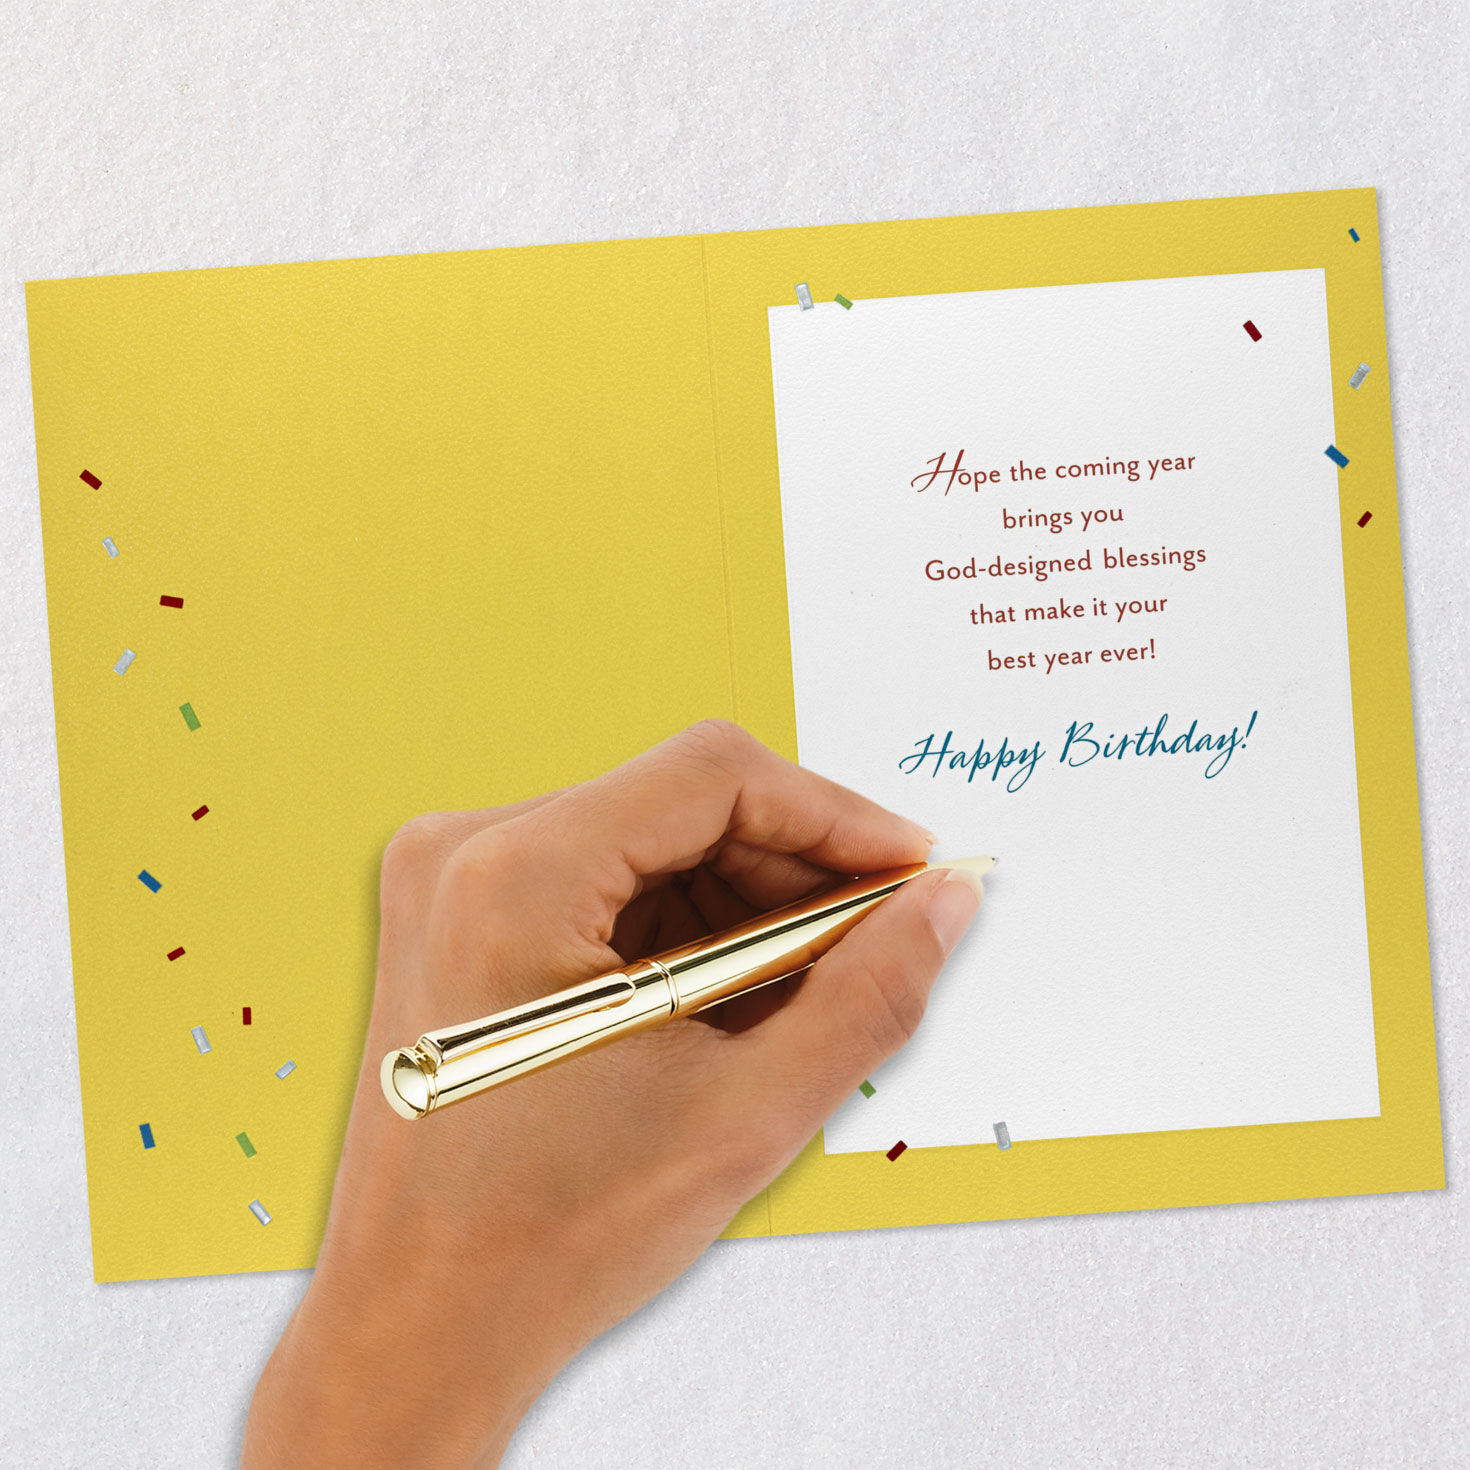 Hope the coming year
brings you
God-designed blessings
that make it your
best year ever!
Happy Birthday!